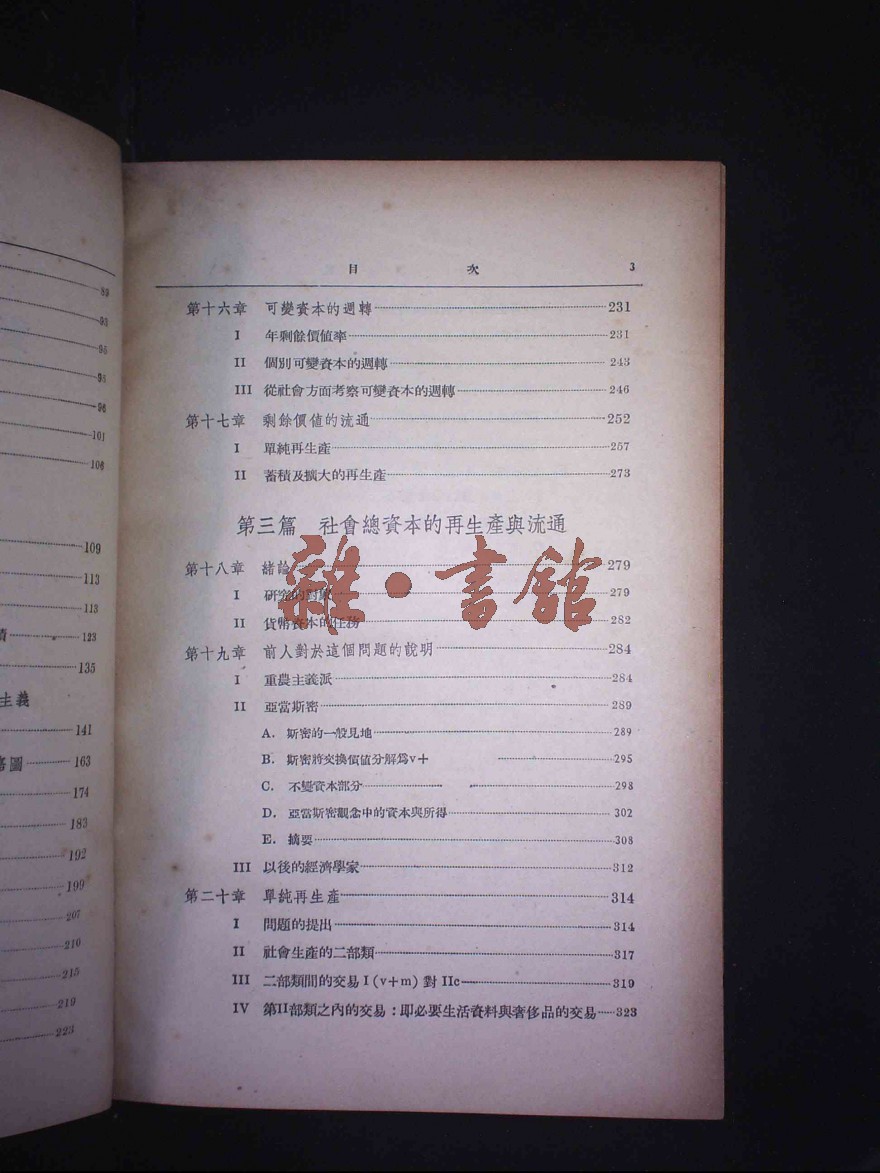 89
93
95
95
96
101
106
109
113
113
123
135
主義
141
圖 163
174
183
192
199
207
210
215
219
223
目 次 3
第十六章 可變資本的週轉 231
I 年剩餘價値率 231
II 個別可變資本的週轉 243
III 從社會方面考察可變資本的週轉 246
第十七章 剩餘價値的流通 252
I 單純再生產 257
II 蓄積及擴大的再生產 273
第三篇 社會總資本的再生產與流通
第十八章 緒論 279
I 研究的對象 279
II 貨幣資本的任務 282
雜·書館
第十九章 前人對於這個問題的說明 284
I 重農主義派 284
II 亞當斯密 289
A. 斯密的一般見地 289
B. 斯密將交換價値分解爲v+ 295
C. 不變資本部分 298
D. 亞當斯密觀念中的資本與所得 302
E. 摘要 308
III 以後的經濟學家 312
第二十章 單純再生產 314
I 問題的提出 314
II 社會生產的二部類 317
III 二部類間的交易 I (v+m) 對 IIc 319
IV 第II部類之內的交易：即必要生活資料與奢侈品的交易 323